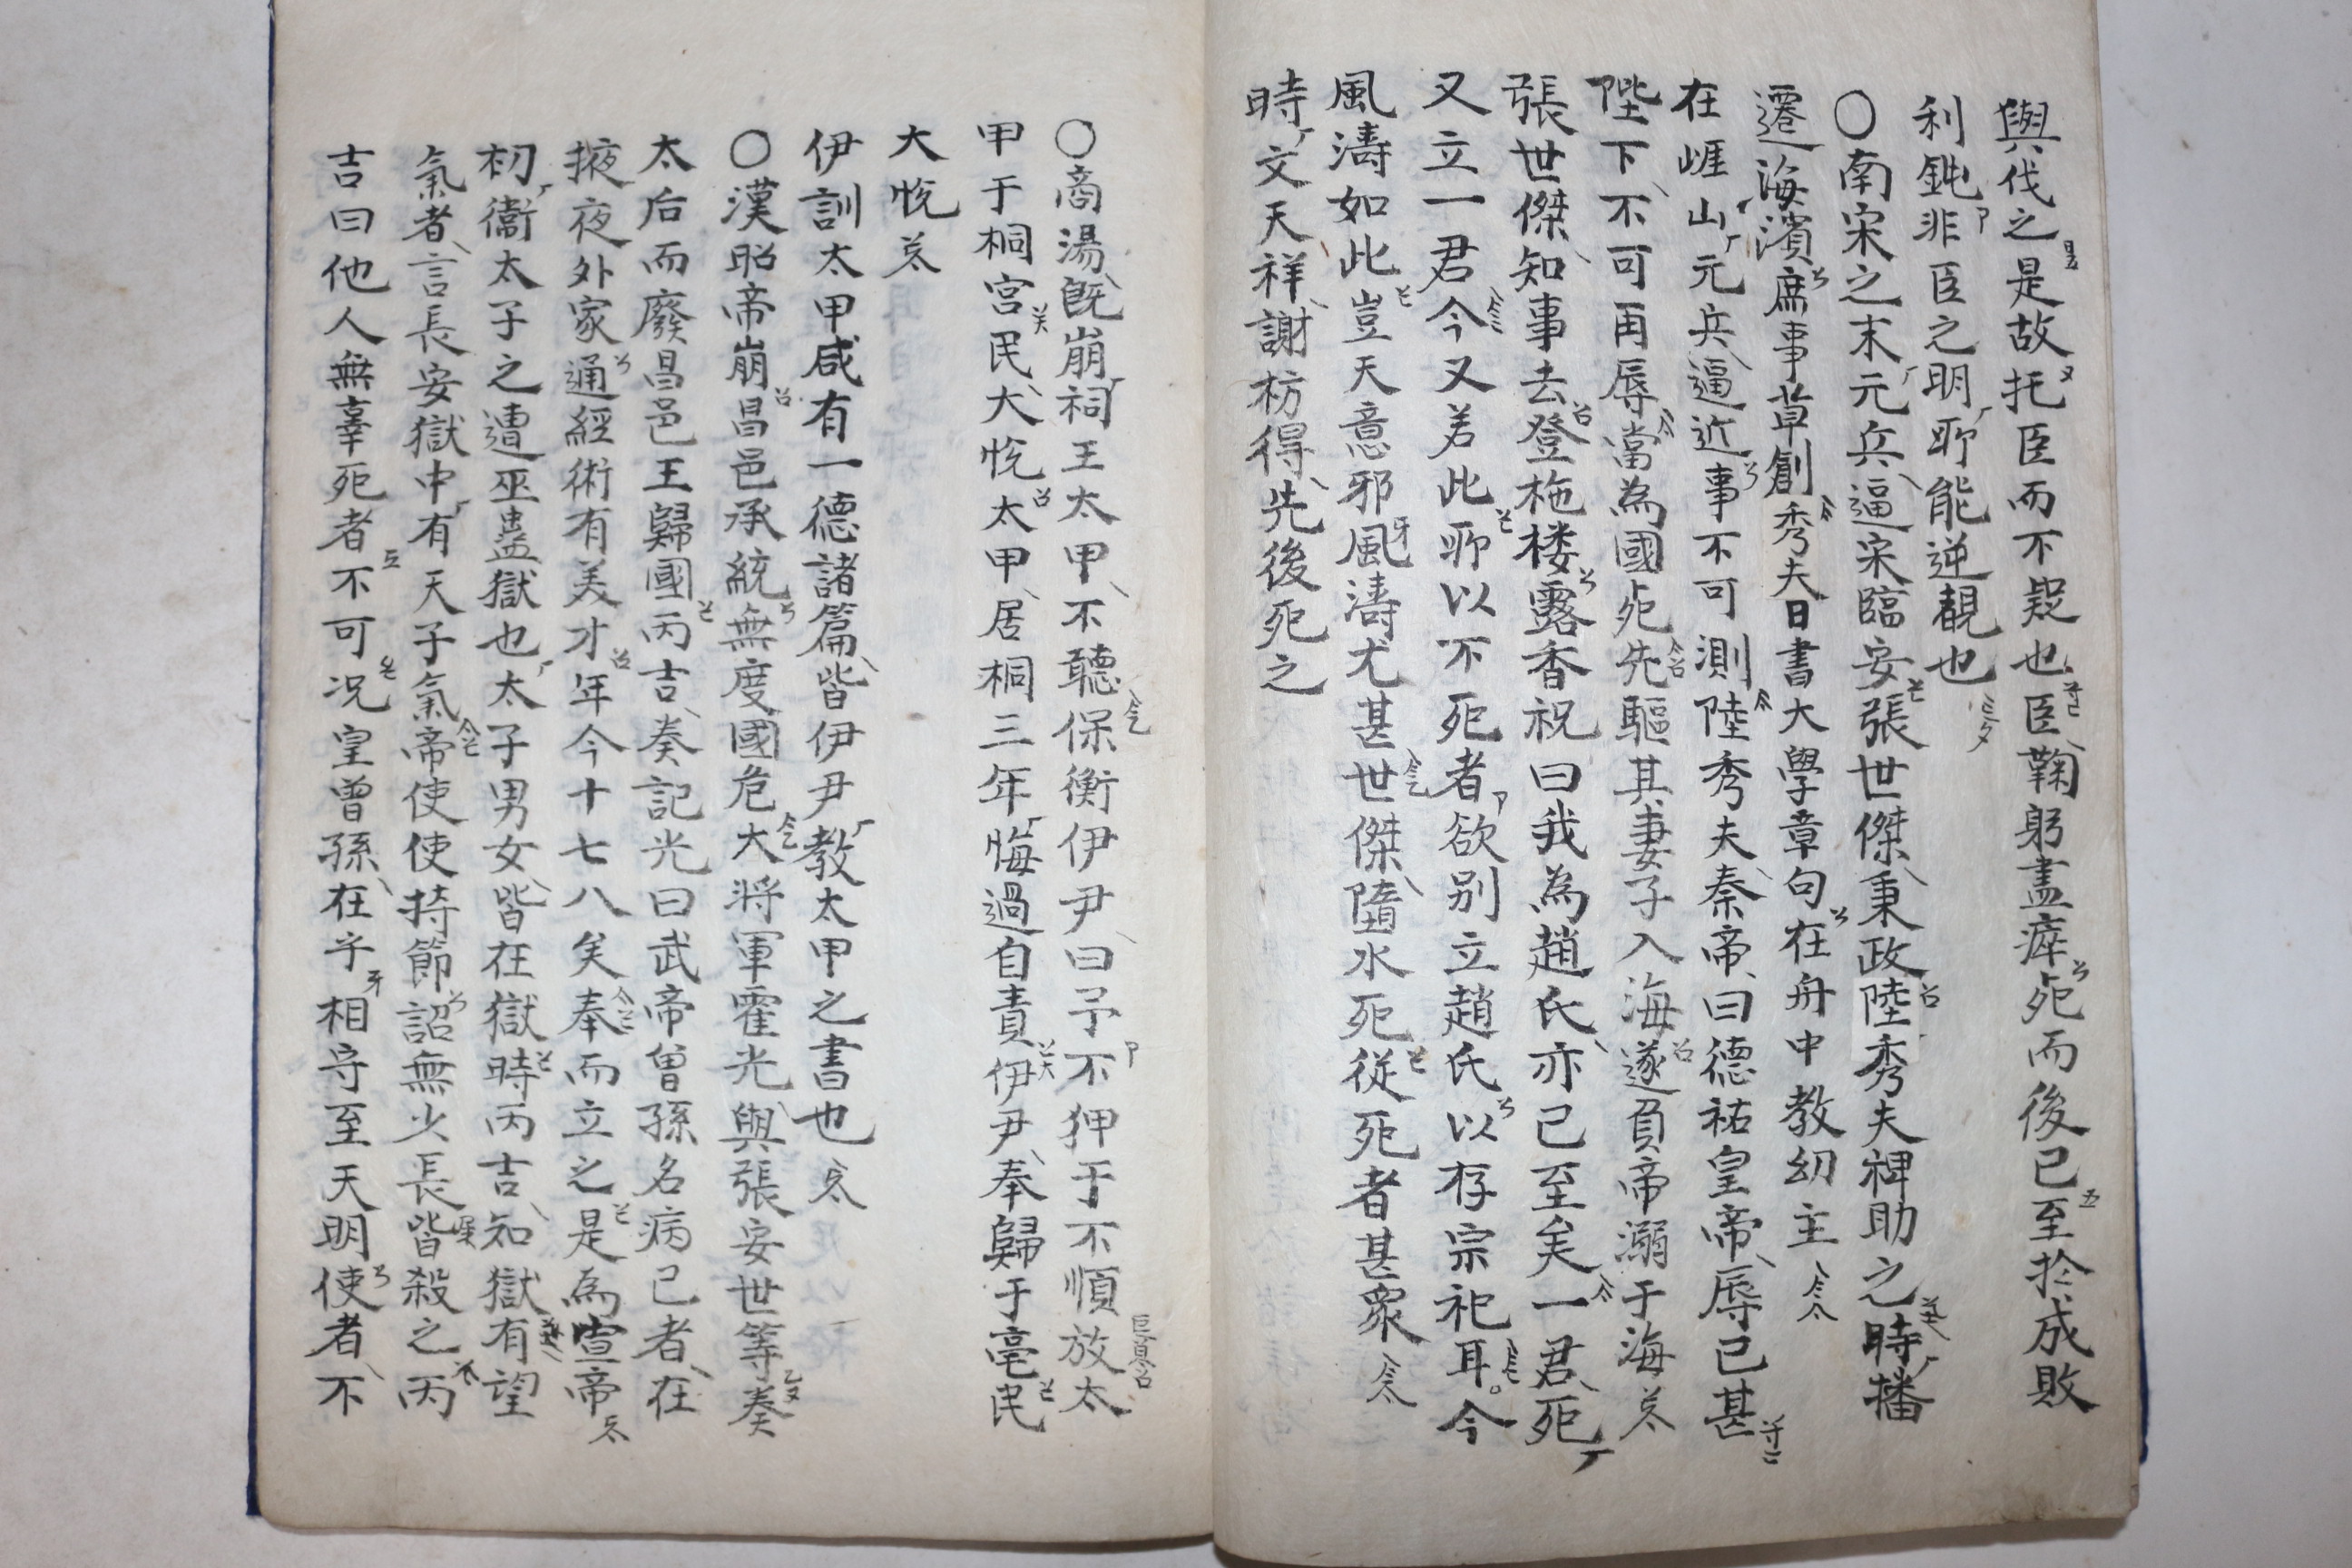 與伐之是故托臣而不疑也臣鞠躬盡瘁死而後已至於成敗
利鈍非臣之明所能逆覩也
○南宋之末元兵逼宋臨安張世傑秉政陸秀夫裨助之時播
遷海濱庶事草創秀夫日書大學章句在舟中教幼主
在崕山元兵逼近事不可測陸秀夫秦帝曰德祐皇帝辱已甚
陛下不可再辱當為國死先驅其妻子入海遂負帝溺于海
張世傑知事去登柂楼露香祝曰我為趙氏亦已至矣一君死
又立一君今又若此所以不死者欲別立趙氏以存宗祀耳今
風濤如此豈天意邪風濤尤甚世傑墮水死從死者甚衆
時文天祥謝枋得先後死之
○商湯旣崩祠王太甲不聽保衡伊尹曰予不狎于不順放太
甲于桐宮民大悅太甲居桐三年悔過自責伊尹奉歸于亳民
大悅
伊訓太甲咸有一德諸篇皆伊尹教太甲之書也
○漢昭帝崩昌邑承統無度國危大將軍霍光與張安世等奏
太后而廢昌邑王歸國丙吉奏記光曰武帝曾孫名病已者在
掖夜外家通經術有美才年今十七八矣奉而立之是為宣帝
初衞太子之遭巫蠱獄也太子男女皆在獄時丙吉知獄有望
氣者言長安獄中有天子氣帝使使持節詔無少長皆殺之丙
吉曰他人無辜死者不可况皇曾孫在乎相守至天明使者不